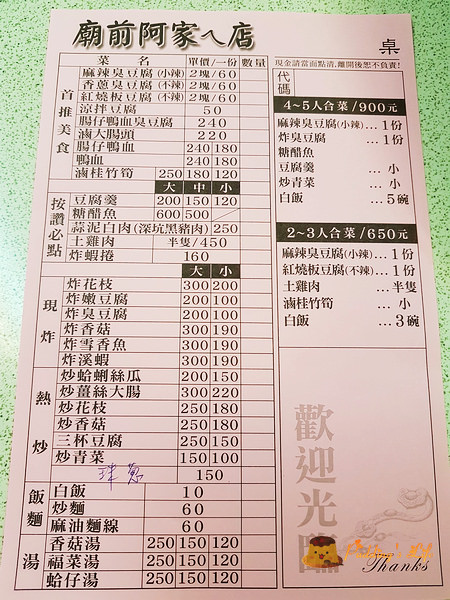 廟前阿家ㄟ店
桌
現金請當面點清,離開後恕不負責!
菜 名 單價/一份 數量
首推美食
麻辣臭豆腐(小辣) 2塊/60
香蔥臭豆腐(不辣) 2塊/60
紅燒板豆腐(不辣) 2塊/60
涼拌豆腐 50
腸仔鴨血臭豆腐 240
滷大腸頭 220
腸仔鴨血 240 180
鴨血 240 180
滷桂竹筍 250 180 120
按讚必點
大 中 小
豆腐羹 200 150 120
糖醋魚 600 500
蒜泥白肉(深坑黑豬肉) 250
土雞肉 半隻/450
炸蝦捲 160
現炸
大 小
炸花枝 300 200
炸嫩豆腐 200 100
炸臭豆腐 200 100
炸香菇 300 190
炸雪香魚 300 190
炸溪蝦 300 190
熱炒
炒蛤蜊絲瓜 200 150
炒薑絲大腸 300 220
炒花枝 250 180
炒香菇 250 180
三杯豆腐 250 150
炒青菜 150 100
150
飯麵
白飯 10
炒麵 60
麻油麵線 60
湯
香菇湯 250 150 120
福菜湯 250 150 120
蛤仔湯 250 150 120
代碼
4~5人合菜/900元
麻辣臭豆腐(小辣)...1份
炸臭豆腐 ...1份
糖醋魚
豆腐羹 ... 小
炒青菜 ... 小
白飯 ...5碗
2~3人合菜/650元
麻辣臭豆腐(小辣)...1份
紅燒板豆腐(不辣)...1份
土雞肉 ...半隻
滷桂竹筍 ... 小
白飯 ...3碗
歡迎光臨
Thanks